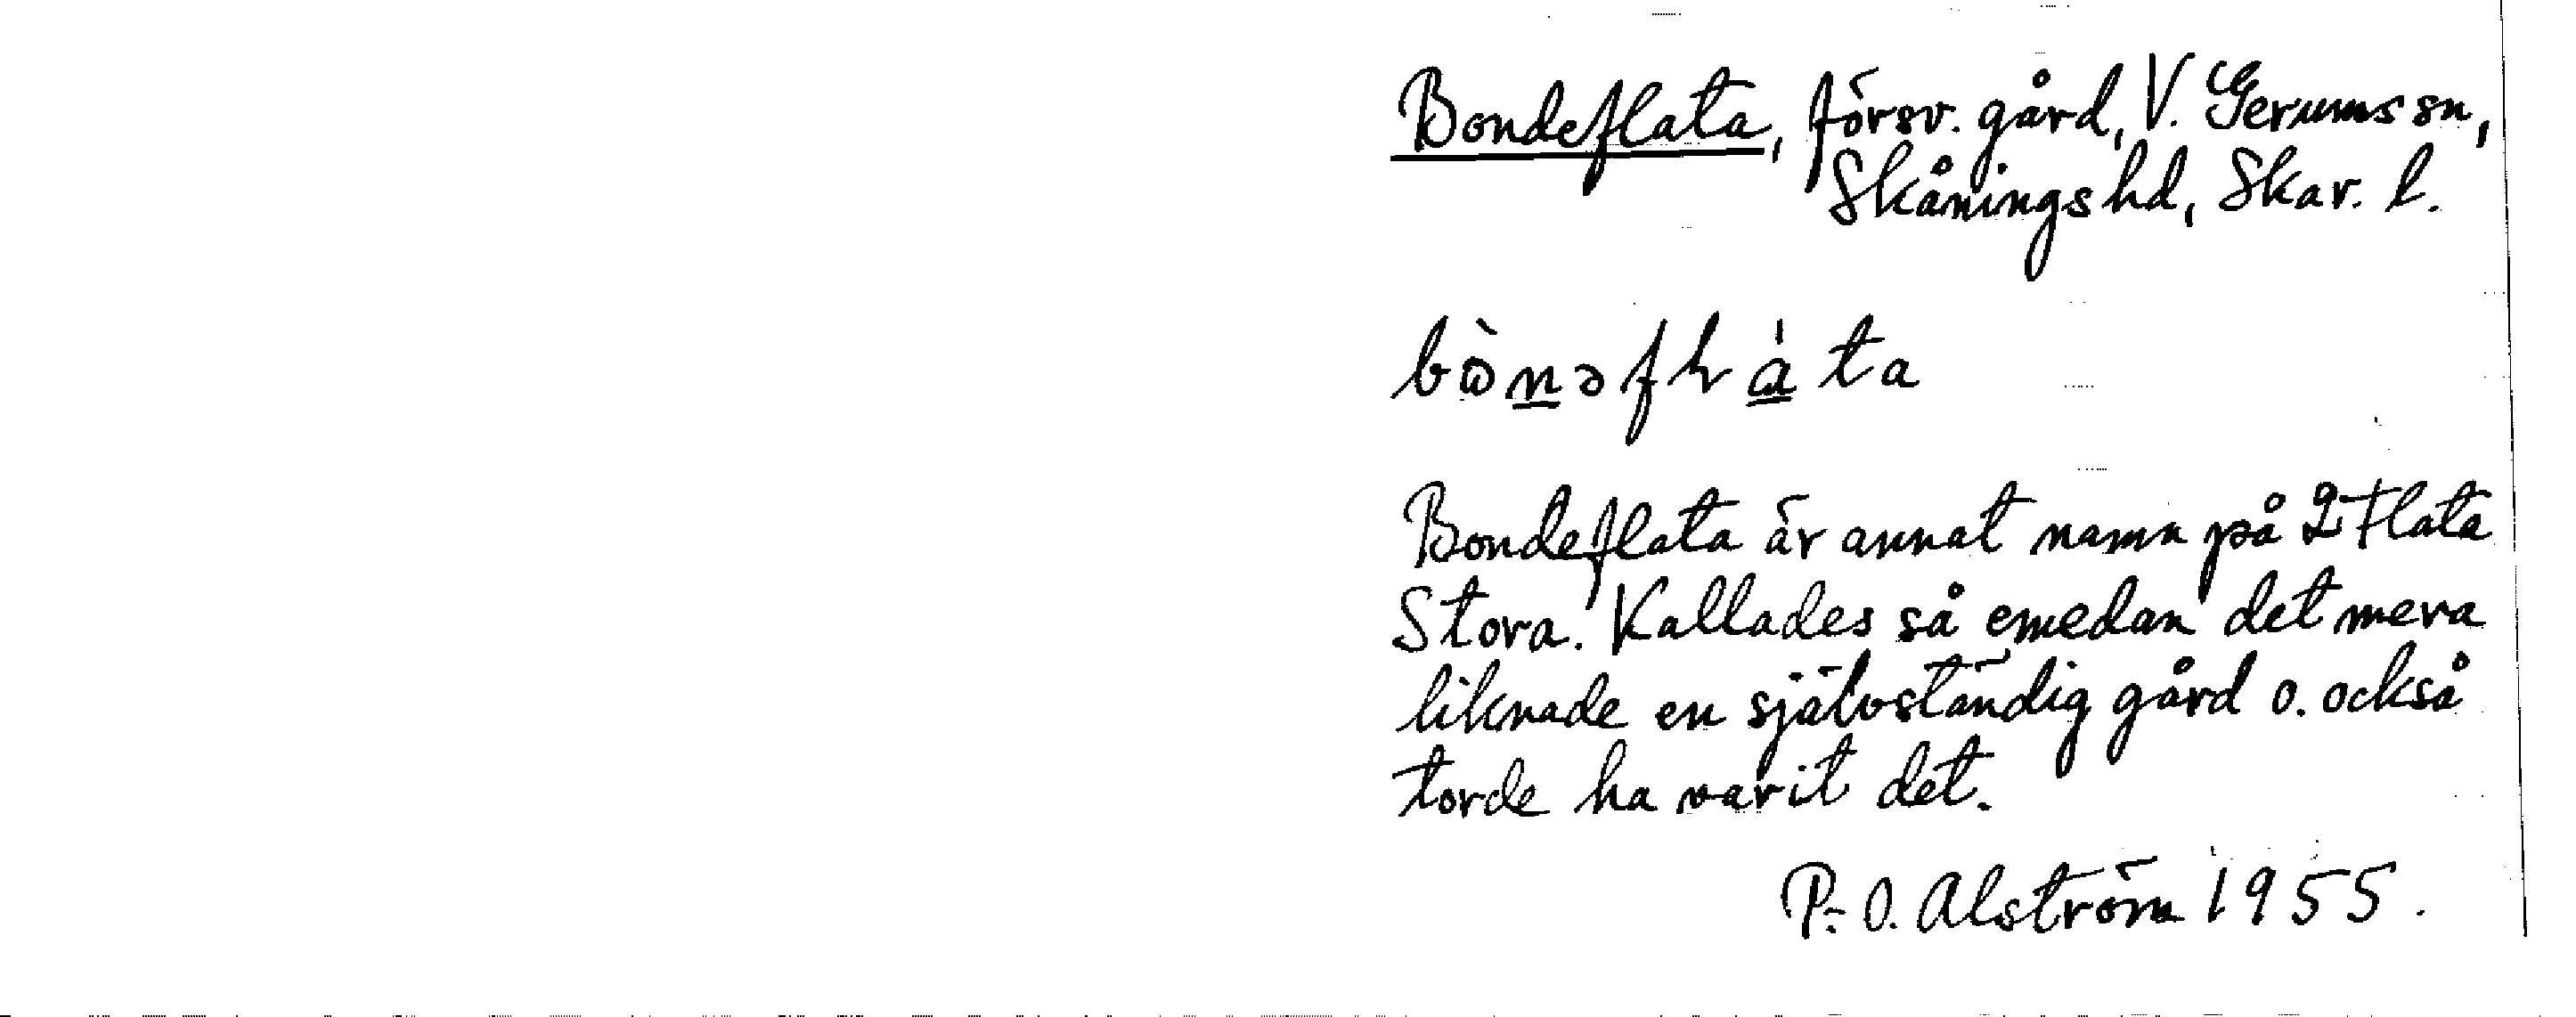 Bondeflata, försv. gård, V. Gerums sn,
Skånings hd, Skar. l.
bònəfɫáta
Bondeflata är annat namn på 2 Flata
Stora. Kallades så emedan det mera
liknade en självständig gård o. också
torde ha varit det.
P.-O. Alström 1955.